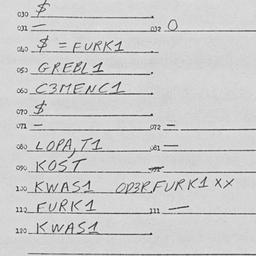 030 $
031 — 032 O
040 $ = FURK1
050 GREBL1
060 C3MENC1
070 $
071 — 072 =
080 LOPA, T1 081 —
090 KOST
100 KWAS1 OD3R, FURK1 XX
110 FURK1 111 —
120 KWAS1